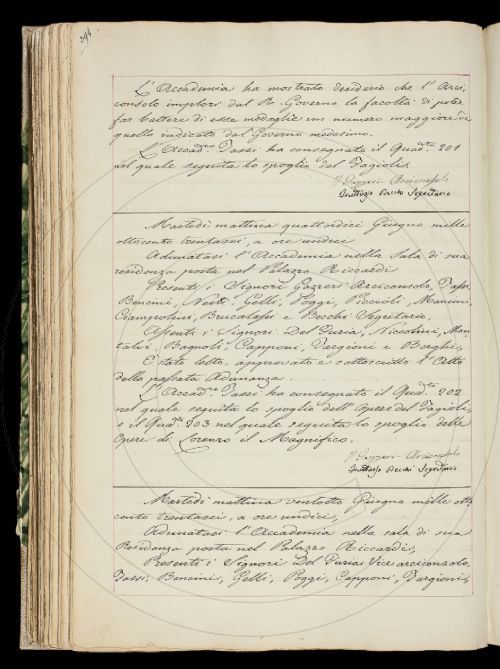 394
L'Accademia ha mostrato desiderio che l'Arci-
consolo implori dal R. Governo la facoltà di poter
far battere di esse medaglie un numero maggiore di
quello indicato dal Governo medesimo.
L'Accad.co Tassi ha consegnato il Quad.o 201
nel quale seguita lo spoglio del Fagioli.
V. Gazzeri Arciconsolo
Fruttuoso Becchi Segretario
Martedì mattina quattordici Giugno mille
ottocento trentasei, a ore undici
Adunatasi l'Accademia nella Sala di sua
residenza posta nel Palazzo Riccardi
Presenti i Signori Gazzeri Arciconsolo, Tassi
Bencini, Nesti, Gelli, Poggi, Piccioli, Mancini,
Ciampolini, Brucalassi e Becchi Segretario,
Assenti i Signori Del Furia, Niccolini, Mon-
talvi, Bagnoli, Capponi, Targioni e Borghi,
È stato letto, approvato e sottoscritto l'Atto
della passata Adunanza.
L'Accad.co Tassi ha consegnato il Quad.o 202
nel quale seguita lo spoglio dell'Opere del Fagioli,
e il Quad.o 203 nel quale seguita lo spoglio delle
Opere di Lorenzo il Magnifico.
V. Gazzeri Arciconsolo
Fruttuoso Becchi Segretario
Martedì mattina ventotto Giugno mille otto-
cento trentasei, a ore undici,
Adunatasi l'Accademia nella sala di sua
Residenza posta nel Palazzo Riccardi,
Presenti i Signori Del Furia Vice arciconsolo,
Tassi, Bencini, Gelli, Poggi, Capponi, Targioni,